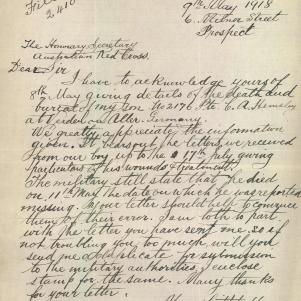 2410
9th May 1918
6. Milner Street
Prospect
The Honorary Secretary
Australian Red Cross.
Dear Sir
I have to acknowledge yours of
8th May giving details of the death and
burial of my son No 3176 Pte C. A.
at Verden on Aller. Germany.
We greatly appreciate the information
given. It bears out the letters we received
from our boy up to the 17th July giving
particulars of his wounds & treatment.
The military still state that he died
on 11th May the date on which he was reported
missing. Your letter should help to convince
them of their error. I am loth to part
with the letter you have sent me. so if
not troubling you too much, will you
send me a duplicate for submission
to the military authorities, I enclose
stamp for the same. Many thanks
for your letter.